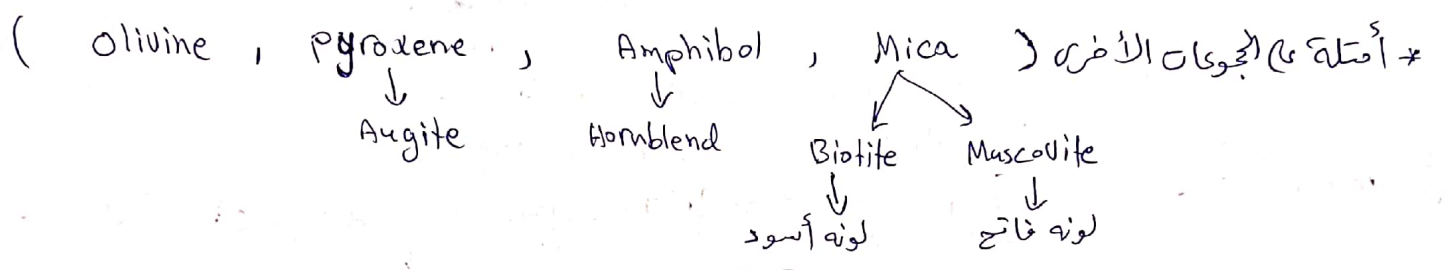 * أمثلة على المجموعات الأخرى ( Mica , Amphibol , pyroxene , olivine )
Augite Hornblend Biotite Muscovite
لونه أسود لونه فاتح